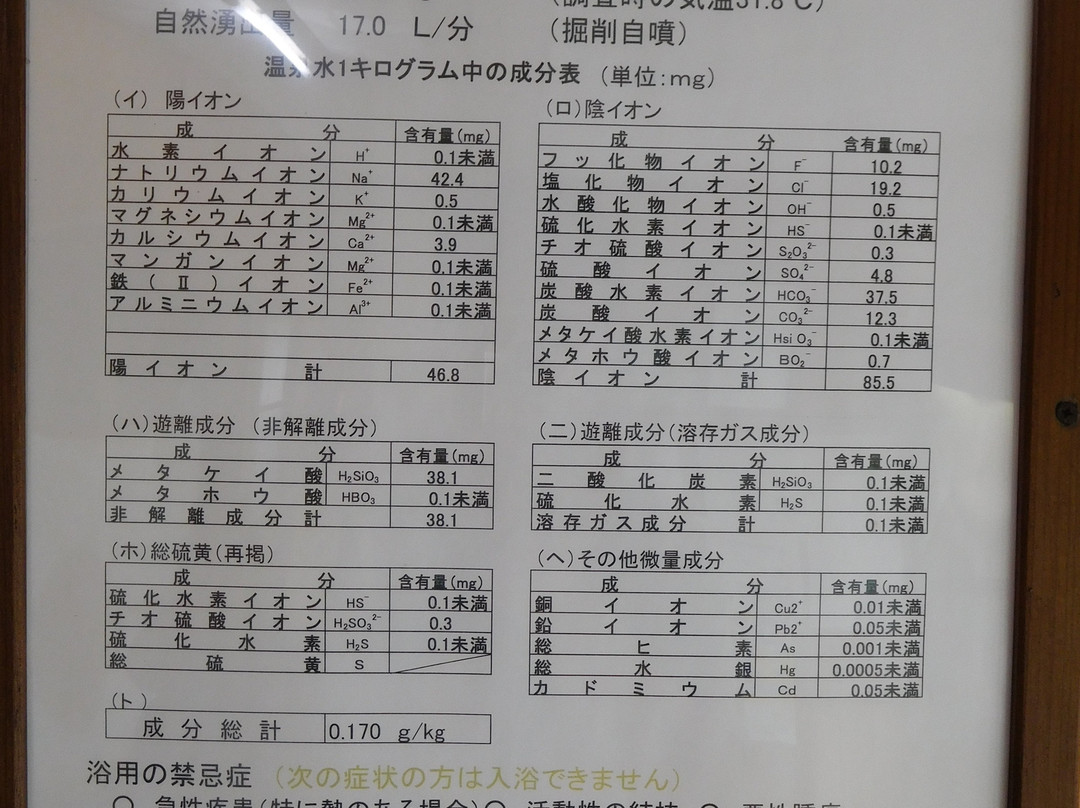 (調査時の気温31.8℃)
自然湧出量 17.0 L/分 (掘削自噴)
温泉水1キログラム中の成分表 (単位:mg)
(イ) 陽イオン
成 分 含有量(mg)
水素イオン H⁺ 0.1未満
ナトリウムイオン Na⁺ 42.4
カリウムイオン K⁺ 0.5
マグネシウムイオン Mg²⁺ 0.1未満
カルシウムイオン Ca²⁺ 3.9
マンガンイオン Mg²⁺ 0.1未満
鉄(Ⅱ)イオン Fe²⁺ 0.1未満
アルミニウムイオン Al³⁺ 0.1未満
陽イオン 計 46.8
(ロ)陰イオン
成 分 含有量(mg)
フッ化物イオン F⁻ 10.2
塩化物イオン Cl⁻ 19.2
水酸化物イオン OH⁻ 0.5
硫化水素イオン HS⁻ 0.1未満
チオ硫酸イオン S₂O₃²⁻ 0.3
硫酸イオン SO₄²⁻ 4.8
炭酸水素イオン HCO₃⁻ 37.5
炭酸イオン CO₃²⁻ 12.3
メタケイ酸水素イオン Hsi O₃⁻ 0.1未満
メタホウ酸イオン BO₂⁻ 0.7
陰イオン 計 85.5
(ハ)遊離成分 (非解離成分)
成 分 含有量(mg)
メタケイ酸 H₂SiO₃ 38.1
メタホウ酸 HBO₃ 0.1未満
非解離成分計 38.1
(二)遊離成分(溶存ガス成分)
成 分 含有量(mg)
二酸化炭素 H₂SiO₃ 0.1未満
硫化水素 H₂S 0.1未満
溶存ガス成分 計 0.1未満
(ホ)総硫黄(再掲)
成 分 含有量(mg)
硫化水素イオン HS⁻ 0.1未満
チオ硫酸イオン H₂SO₃²⁻ 0.3
硫化水素 H₂S 0.1未満
総硫黄 S
(ヘ)その他微量成分
成 分 含有量(mg)
銅イオン Cu2⁺ 0.01未満
鉛イオン Pb2⁺ 0.05未満
総ヒ素 As 0.001未満
総水銀 Hg 0.0005未満
カドミウム Cd 0.05未満
(ト)
成分総計 0.170 g/kg
浴用の禁忌症 (次の症状の方は入浴できません)
○ 急性疾患(特に熱のある場合)○ 活動性の結核 ○ 悪性腫瘍